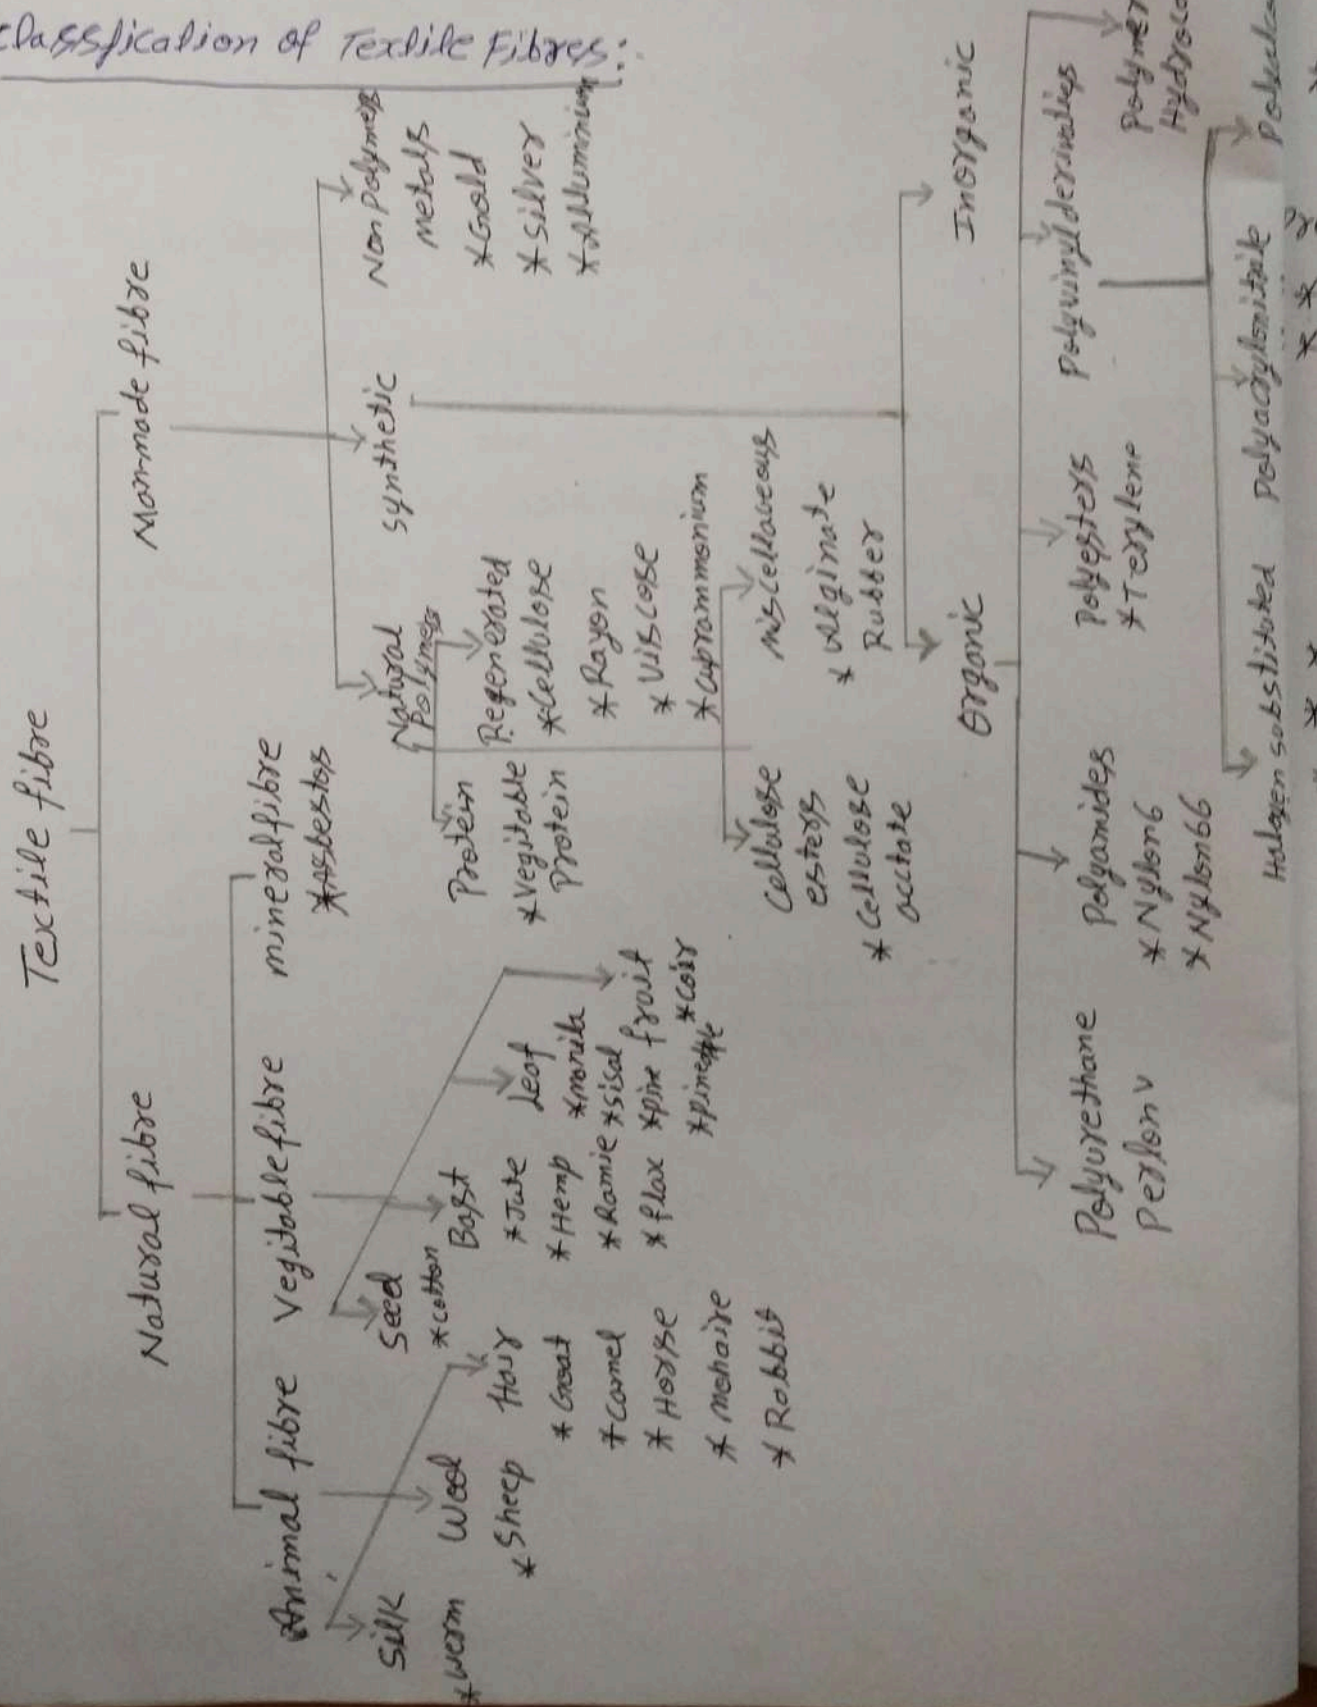 Classfication of Textile Fibres:
Textile fibre
Natural fibre
Man-made fibre
Animal fibre
Vegitable fibre
mineral fibre
*Asbestos
Silk
*Werm
Wool
*Sheep
Hair
*Goat
*Camel
*Horse
*mohaire
*Rabbit
Seed
*cotton
Bast
*Jute
*Hemp
*Ramie
*flax
Leaf
*manila
*sisal
*pine
*pineapple
fruit
*coir
Natural
Polymers
synthetic
Non Polymers
metals
*Gold
*Silver
*Alluminium
Protein
*Vegitable
Protein
Regenerated
*Cellulose
*Rayon
*Viscose
*cuprammonium
Cellulose
esters
*Cellulose
acctate
miscellaceous
*Alginate
Rubber
Organic
Inorganic
Polyurethane
Perlon v
Polyamides
*Nylon6
*Nylon66
Polyesters
*Terylene
Polyvinyl derivaties
Halogen substituted
Polyacrylonitrile